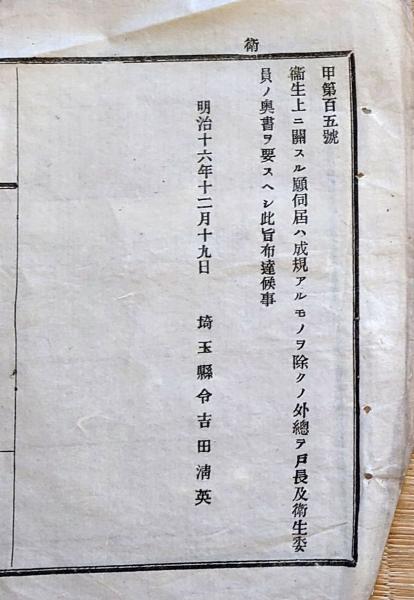 衛
甲第百五號
衞生上ニ關スル願伺屆ハ成規アルモノヲ除クノ外總テ戸長及衞生委
員ノ奥書ヲ要スヘシ此旨布達候事
明治十六年十二月十九日　埼玉縣令吉田淸英